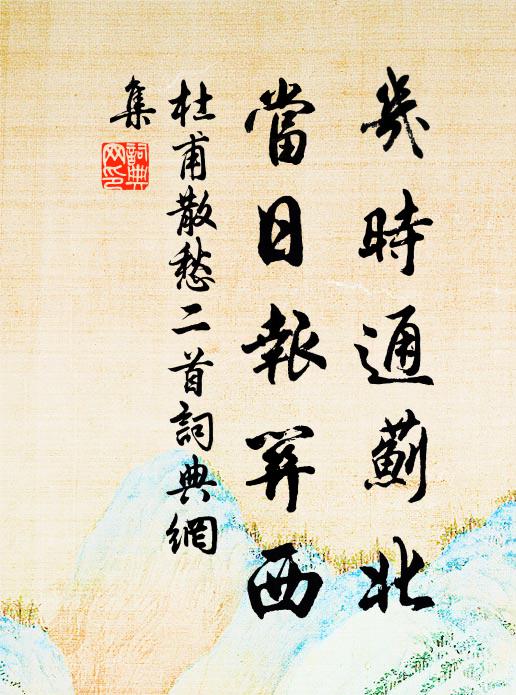 幾時通薊北
當日報關西
杜甫散愁二首詞典網
集
詞典網印